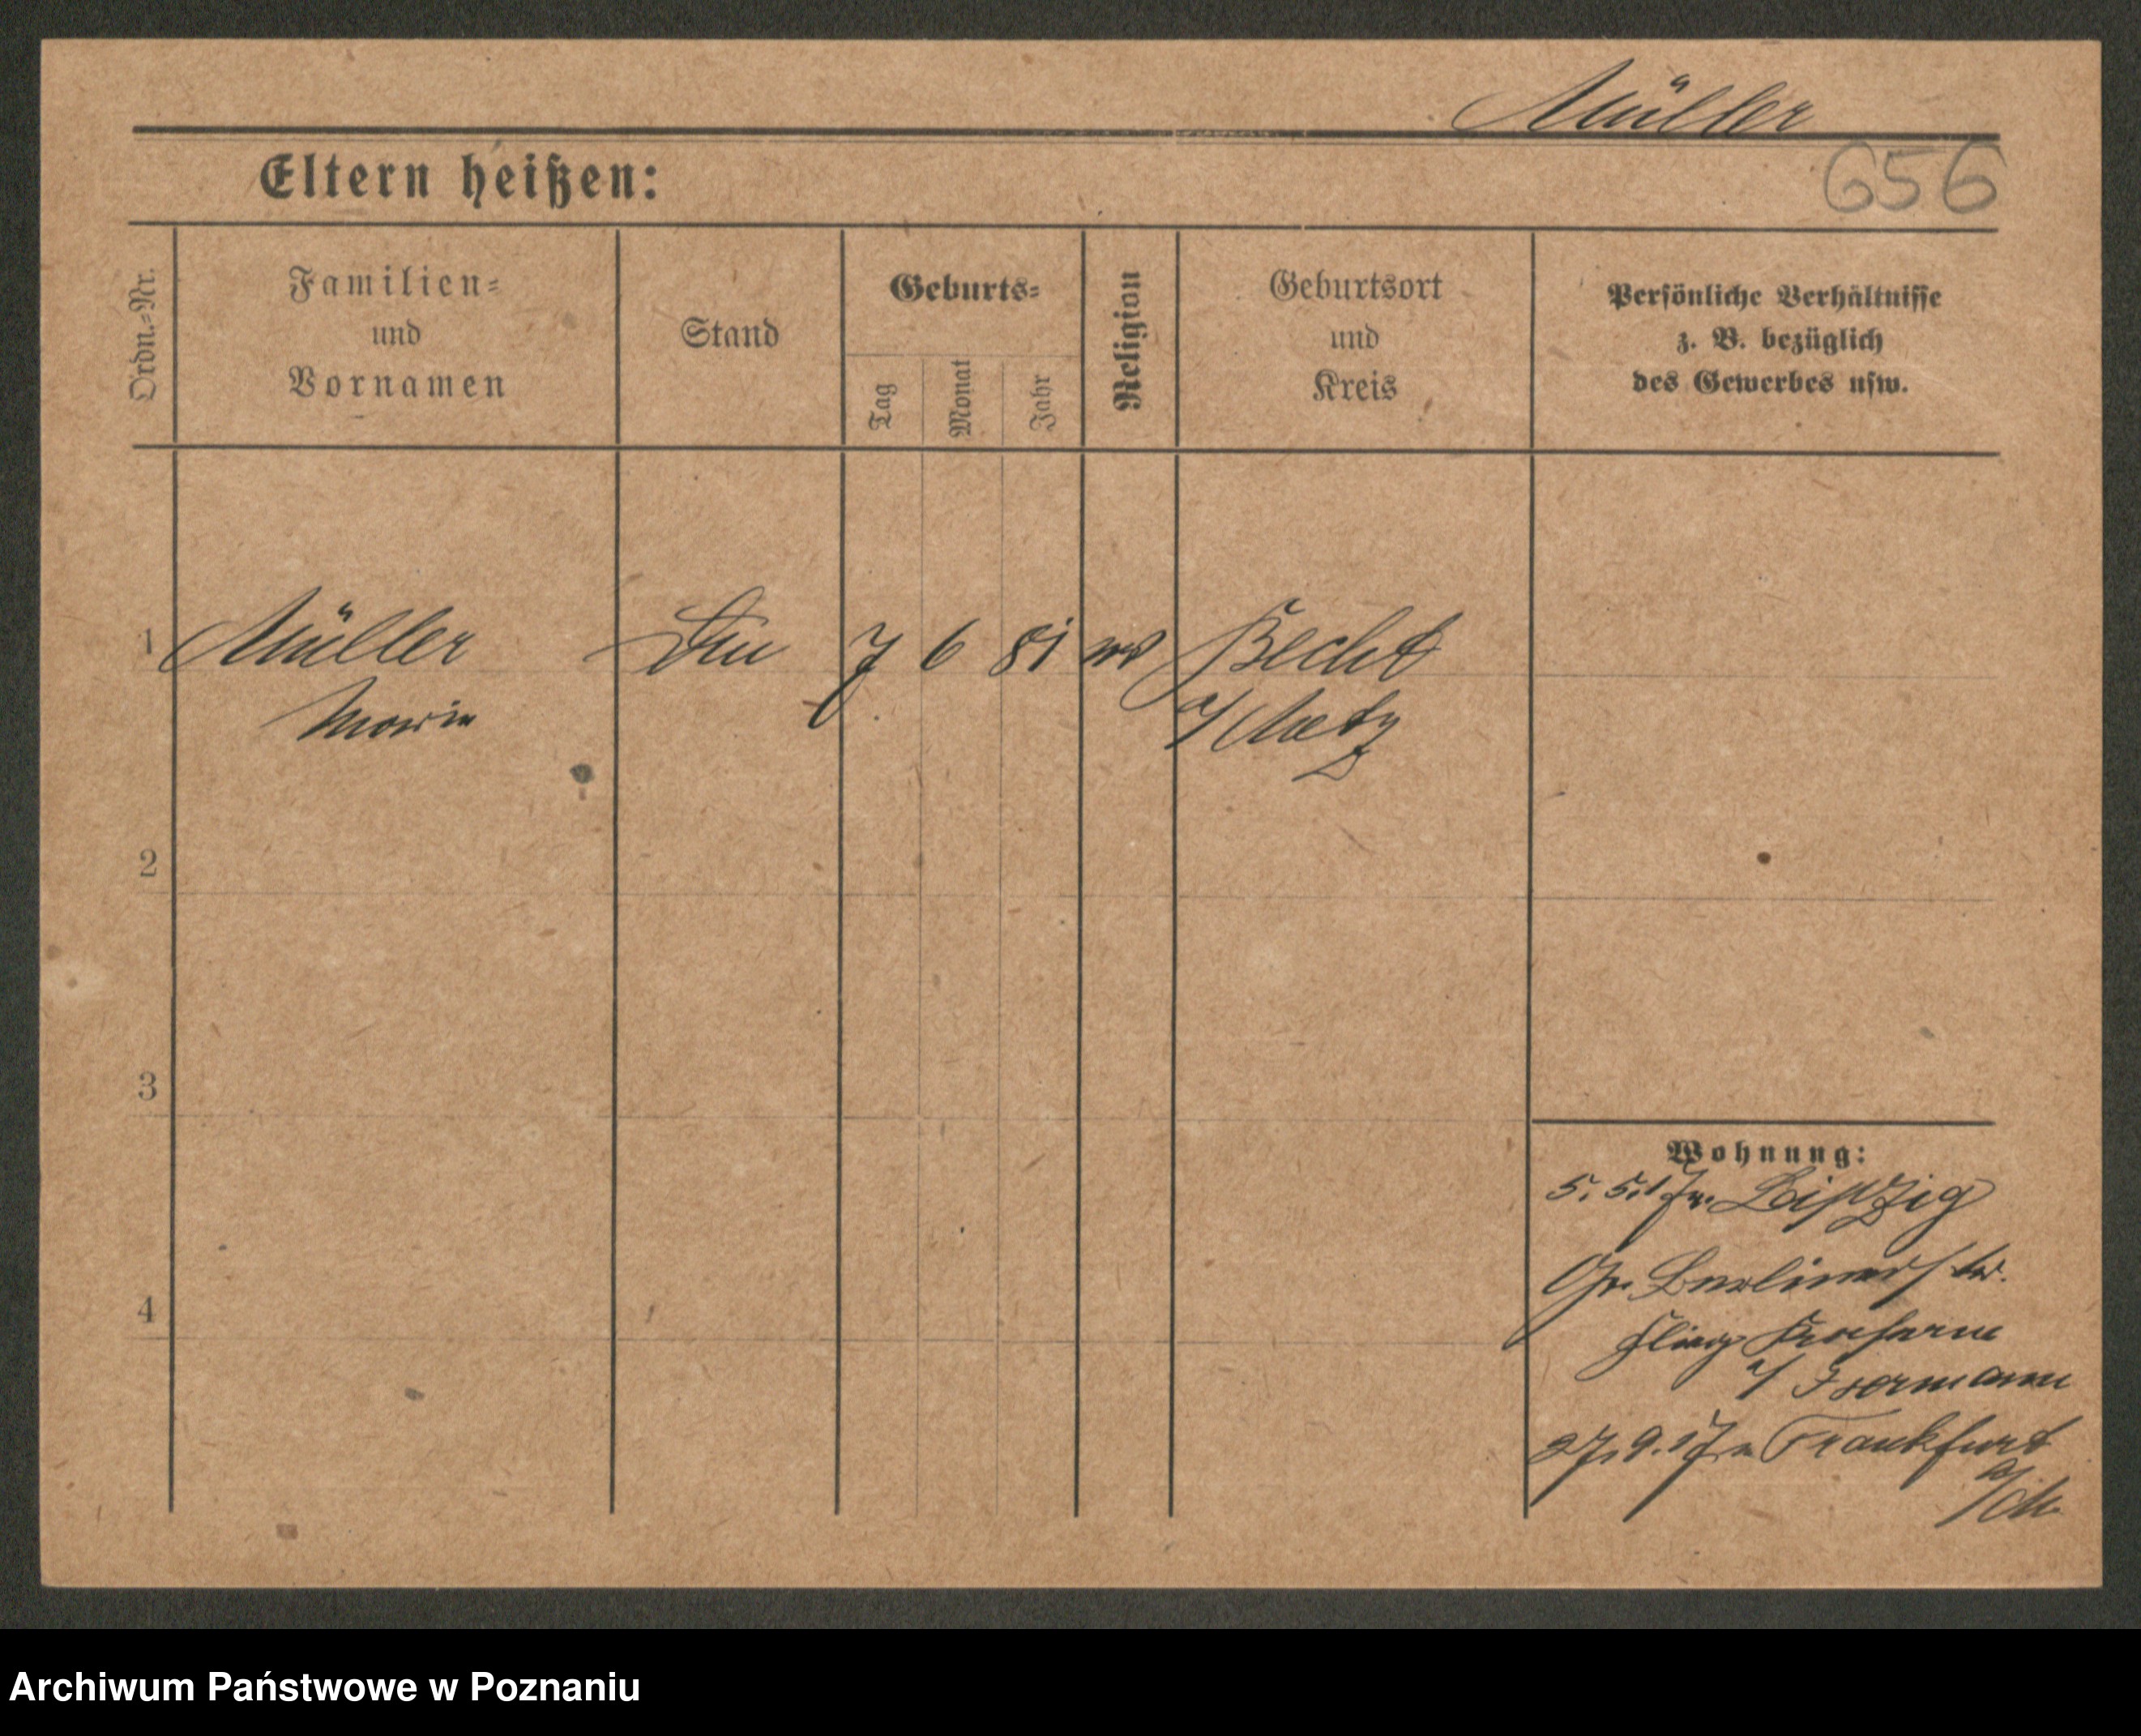 Müller
Eltern heißen:
656
Ordn.=Nr.
Familien=
und
Vornamen
Stand
Geburts=
Tag
Monat
Jahr
Religion
Geburtsort
und
Kreis
Persönliche Verhältnisse
z. B. bezüglich
des Gewerbes usw.
1 Müller 7 6 81 Becht
Maria a/ Metz
2
3
4
Wohnung:
5. 5. 17 Leipzig
Gr. Berlinerstr.
Flieg Kaserne
Isermann
27. 9. 17 n Frankfurt
a/M.
Archiwum Państwowe w Poznaniu